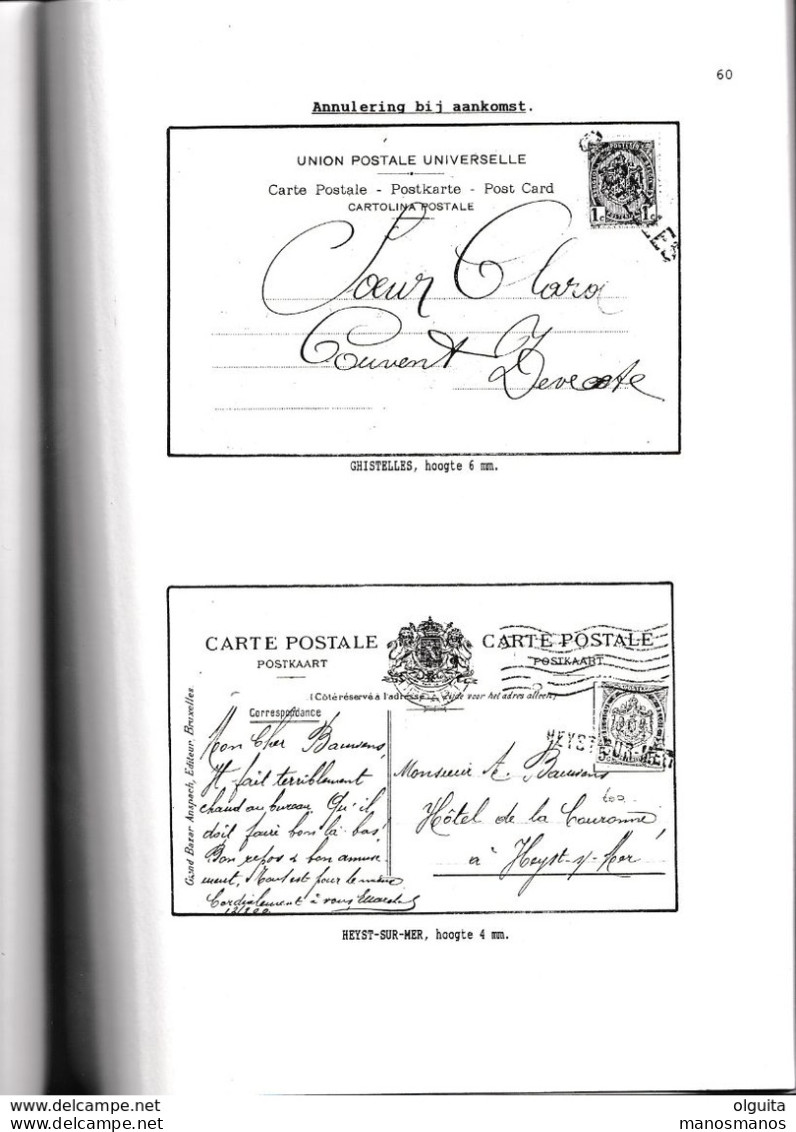 60
Annulering bij aankomst.
UNION POSTALE UNIVERSELLE
Carte Postale - Postkarte - Post Card
CARTOLINA POSTALE
1c 1c
LLES
Sœur Clara
Couvent
GHISTELLES, hoogte 6 mm.
CARTE POSTALE
POSTKAART
CARTE POSTALE
POSTKAART
(Côté réservé à l'adresse Zijde voor het adres alleen)
Correspondance
Grand Bazar Anspach, Editeur, Bruxelles.
Mon Cher Bauwens,
Il fait terriblement
chaud au bureau. Qu'il
doit faire bon là bas!
Bon repos & bon amuse-
ment, pour le même
Cordialement à vous
HEYST-SUR-MER
Monsieur A. Bauwens
Hôtel de la Couronne,
à Heyst-s/-Mer
HEYST-SUR-MER, hoogte 4 mm.
olguita
manosmanos